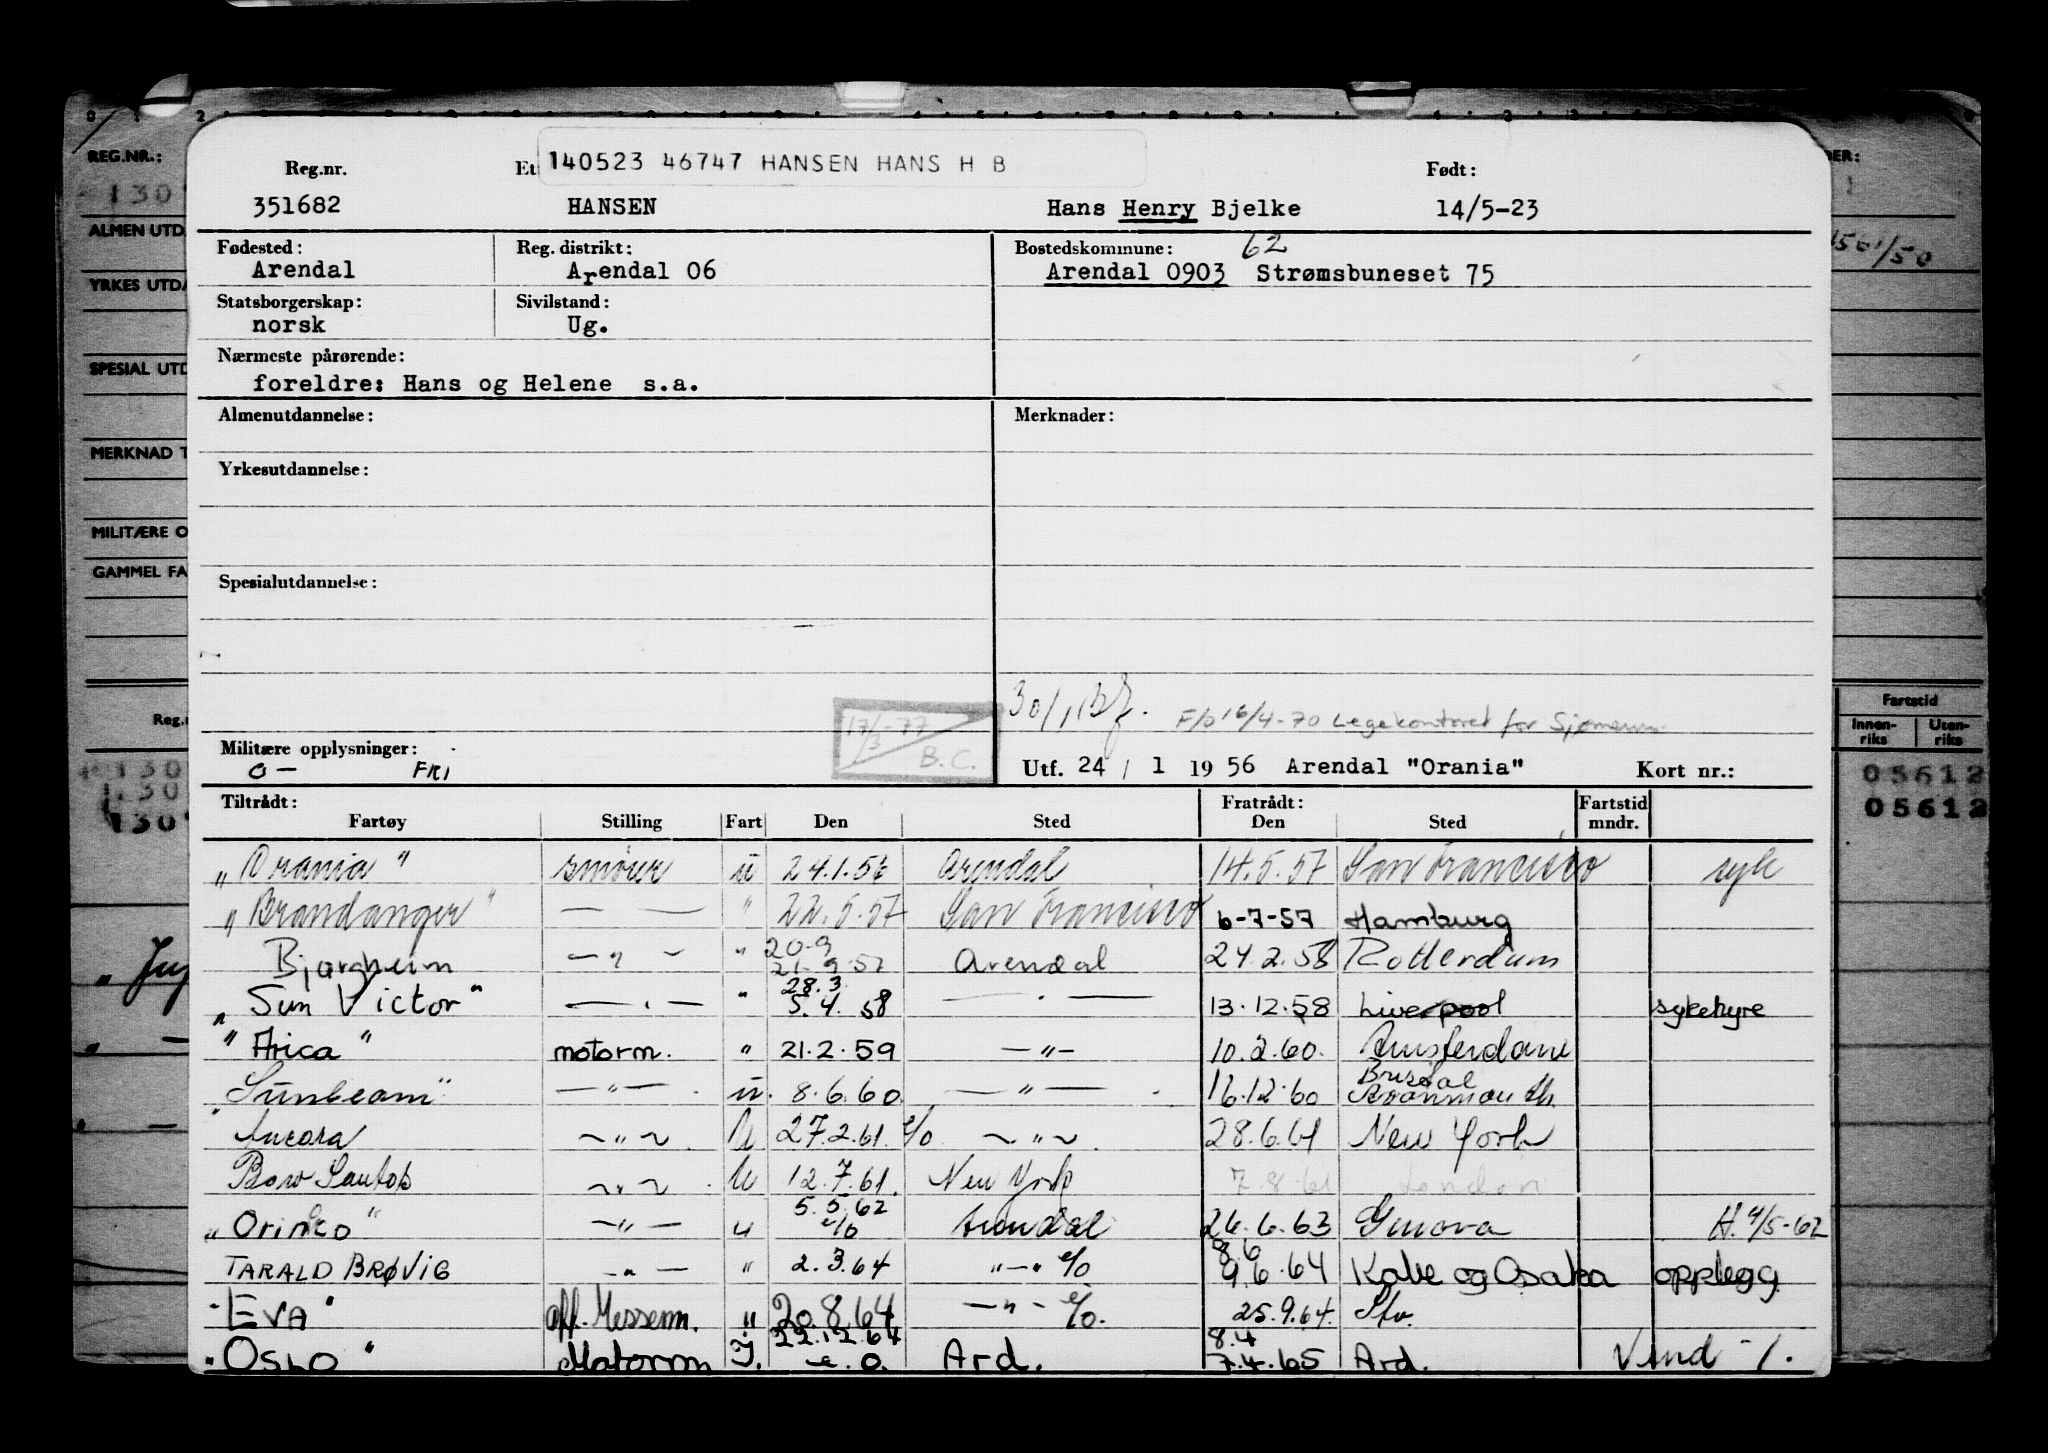 140523 46747 HANSEN HANS H B
Reg.nr. Født:
351682 HANSEN Hans Henry Bjelke 14/5-23
Fødested: Reg. distrikt: Bostedskommune: 62
Arendal Arendal 06 Arendal 0903 Strømsbuneset 75
Statsborgerskap: Sivilstand:
norsk Ug.
Nærmeste pårørende:
foreldre: Hans og Helene s.a.
Almenutdannelse: Merknader:
Yrkesutdannelse:
Spesialutdannelse:
17/3-77 B.C.
F/o 16/4-70 Legekontoret for Sjømenn
Militære opplysninger:
0 - FRI
Utf. 24 / 1 19 56 Arendal "Orania" Kort nr.:
Tiltrådt: Fratrådt: Fartstid
Fartøy Stilling Fart Den Sted Den Sted mndr.
"Orania" smører u 24.1.56 Arendal 14.5.57 San Francisco syk
"Brandanger" — — " 22.5.57 San Francisco 6-7-57 Hamburg
Bjorgheim — " — " 20-9 21-9-57 Arendal 24.2.58 Rotterdam
"Sun Victor" — " — " 28.3. 5.4.58 — " — 13.12.58 Liverpool sykehyre
"Arica" motorm. " 21.2.59 — " — 10.2.60. Amsterdam
"Sunbeam" — " — u. 8.6.60. — " — 16.12.60
Aurora — " — U 27.2.61. e/o — " — 28.6.61 New York
Bow Santos — " — U 12.7.61. New York 7.8.61 London
"Orinoco" — " — u 5.5.62 e/o Arendal 26.6.63 Genova H. 4/5-62
TARALD BRØVIG — " — " 2.3.64 " — " e/o 8.6 9.6.64 Kobe og Osaka opplegg
"EVA" off. Messem. " 20.8.64 — " — e/o. 25.9.64. Stv.
"OSLO" Motorm I. 22.12.64 e.o. Ard. 8.4 7.4.65 Ard. Vend /.
REG.NR.:
ALMEN UTD
YRKES UTDA
SPESIAL UTD
MERKNAD T
MILITÆRE O
GAMMEL FA
Reg.n
DER:
Fartstid
Innen-riks Uten-riks
05612
05612